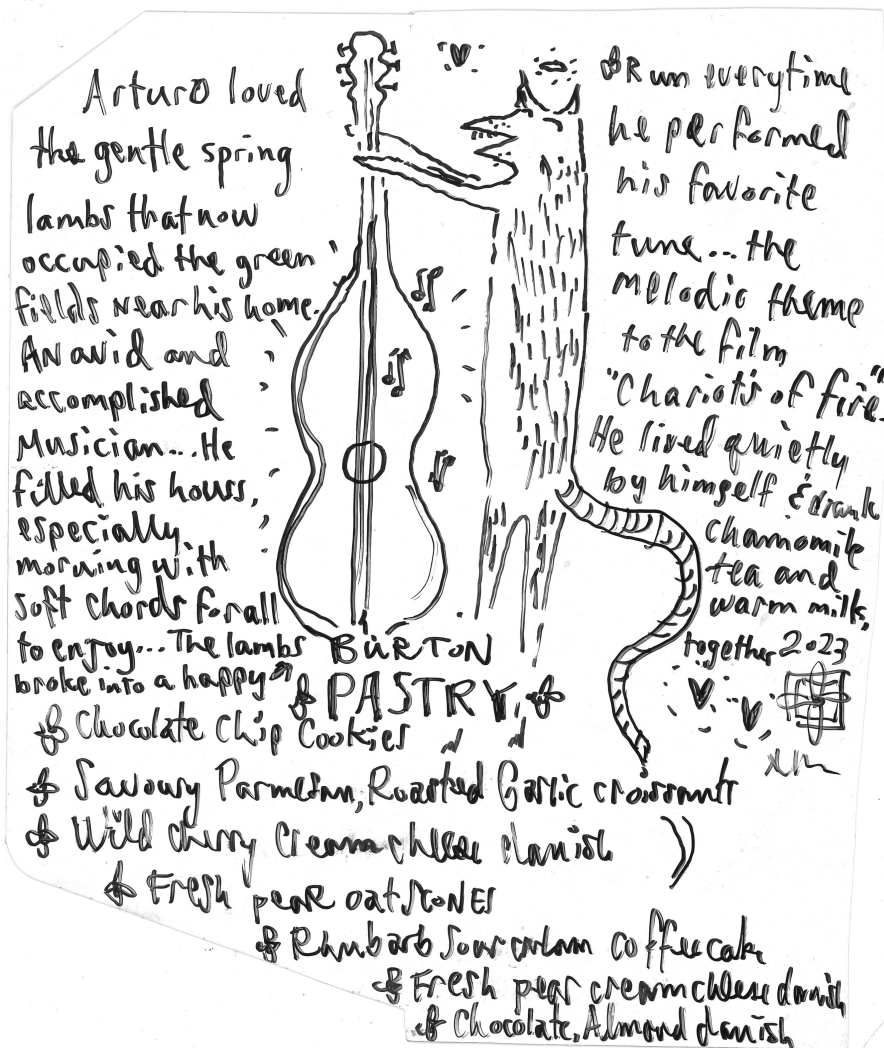 Arturo loved
the gentle spring
lambs that now
occupied the green
fields near his home.
An avid and
accomplished
Musician... He
filled his house,
especially
morning with
soft chords for all
to enjoy... The lambs
broke into a happy
Run everytime
he performed
his favorite
tune... the
melodic theme
to the film
"Chariots of fire."
He lived quietly
by himself & drank
chamomile
tea and
warm milk,
together 2023
BURTON
PASTRY
Chocolate Chip Cookies
Savoury Parmesan, Roasted Garlic croissants
Wild cherry Cream cheese danish
Fresh pear oat scones
Rhubarb Sour cream coffee cake
Fresh pear cream cheese danish
Chocolate, Almond danish